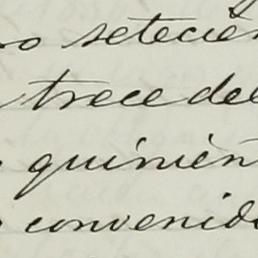 ro setecien
trece del
quinien
convenido